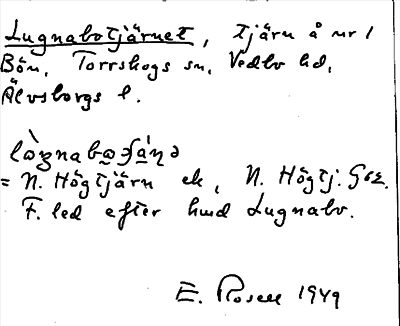 Lugnabotjärnet, tjärn å nr 1
Bön, Torrskogs sn, Vedbo hd,
Älvsborgs l.
= N. Högtjärn ek, N. Högtj. GSE.
F. led efter hmd Lugnabo.
E. Rosell 1949